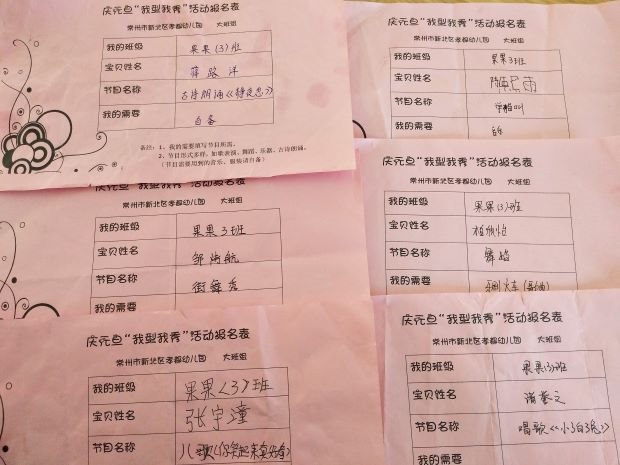 庆元旦“我型我秀”活动报名表
常州市新北区孝都幼儿园 大班组
我的班级 果果(3)班
宝贝姓名 薛路洋
节目名称
我的需要 自备
备注：1、我的需要填写节目所需。
2、节目形式多样，如歌表演、舞蹈、乐器、古诗朗诵。
（节目需要用到的音乐、服装请自备）
庆元旦“我型我秀”活动报名表
常州市新北区孝都幼儿园 大班组
我的班级 果果3班
宝贝姓名
节目名称 学猫叫
我的需要
庆元旦“我型我秀”活动报名表
常州市新北区孝都幼儿园 大班组
我的班级 果果3班
宝贝姓名 邹炳航
节目名称 街舞秀
我的需要
庆元旦“我型我秀”活动报名表
常州市新北区孝都幼儿园 大班组
我的班级 果果(3)班
宝贝姓名
节目名称 舞蹈
我的需要
庆元旦“我型我秀”活动报名表
常州市新北区孝都幼儿园 大班组
我的班级 果果(3)班
宝贝姓名 张宇潼
节目名称 儿歌《你笑起来真好看》
庆元旦“我型我秀”活动报名表
常州市新北区孝都幼儿园 大班组
我的班级 果果(3)班
宝贝姓名
节目名称 唱歌《小白兔》
我的需要